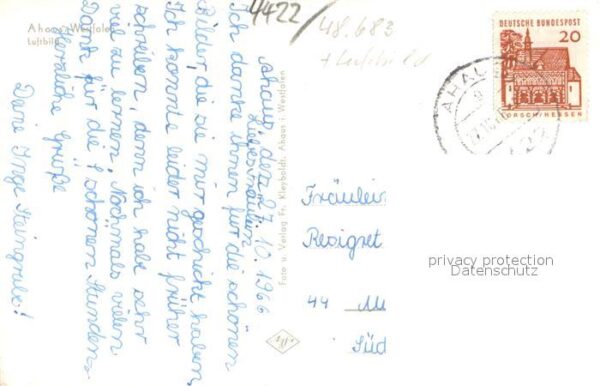 Ahaus i. Westfalen
Luftbild
4422/
48.683
+ Luftbild
Ahaus, den 27.10.1966
Liebes
Ich danke Ihnen für die schönen
Bilder, die sie mir geschickt haben.
Ich konnte leider nicht früher
schreiben, denn ich habe sehr
viel zu lernen. Nochmals vielen
Dank für die schönen Stunden.
Herzliche Grüße
Deine Inge Steingrube!
Foto u. Verlag Fr. Kleyboldt, Ahaus i Westfalen
DEUTSCHE BUNDESPOST
20
LORSCH/HESSEN
AHAU
Fräulein
Resi
44 M
Süd
privacy protection
Datenschutz